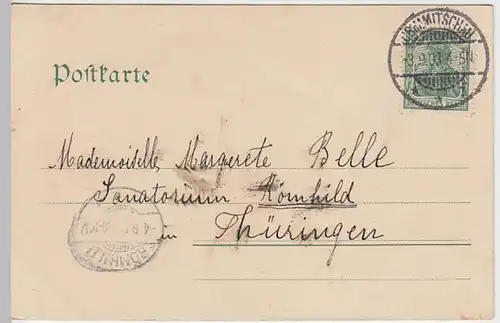 Postkarte
CRIMMITSCHAU
Mademoiselle Margerete Belle
Sanatorium Römhild
in Thüringen
RÖMHILD